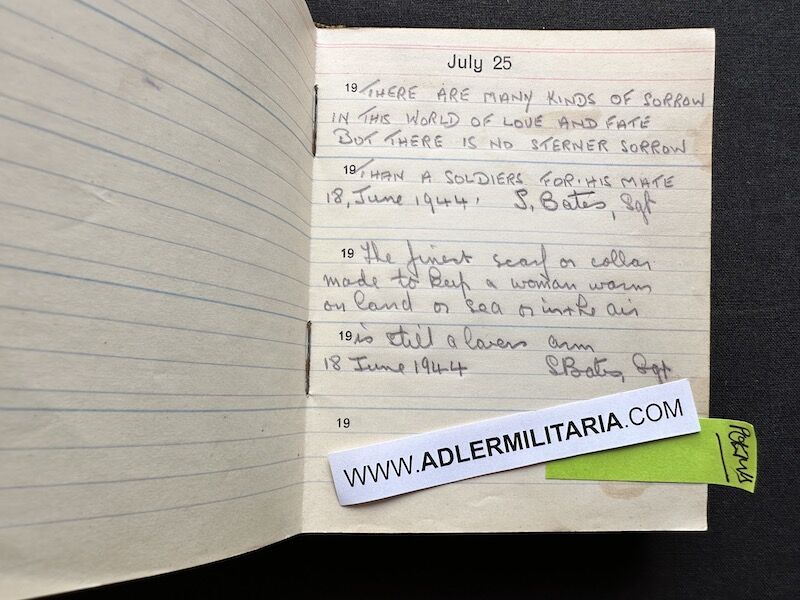 July 25
19 THERE ARE MANY KINDS OF SORROW
IN THIS WORLD OF LOVE AND FATE
BUT THERE IS NO STERNER SORROW
19 THAN A SOLDIERS FOR HIS MATE
18, June 1944. S. Bates, Sgt
19 The finest scarf or collar
made to keep a woman warm
on land or sea or in the air
19 is still a lovers arm
18 June 1944 S Bates, Sgt
19
WWW.ADLERMILITARIA.COM
POEMS